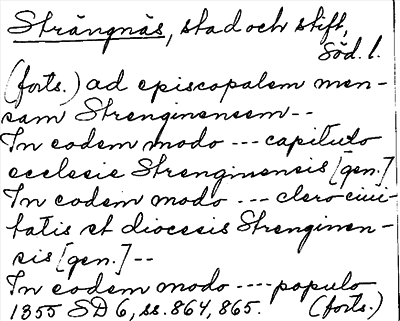 Strängnäs, stad och stift,
Söd. l.
(forts.) ad episcopalem men-
sam Strenginensem --
In eodem modo --- capitulo
ecclesie Strenginensis [gen.]
In eodem modo --- clero civi-
tatis et diocesis Strenginen-
sis [gen.] --
In eodem modo ---- populo
1355 SD 6, ss. 864, 865. (forts.)